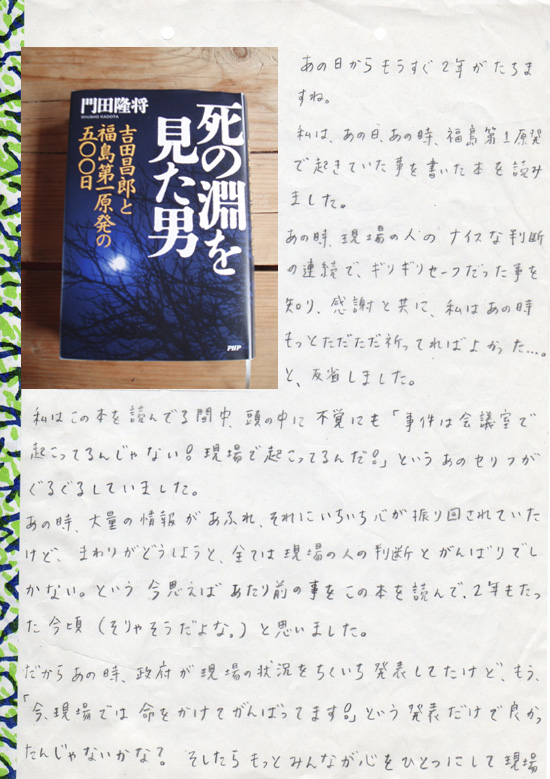 門田隆将
RYUSHO KADOTA
死の淵を
見た男
吉田昌郎と
福島第一原発の
五〇〇日
PHP
あの日からもうすぐ2年がたちま
すね。
私は、あの日、あの時、福島第1原発
で起きていた事を書いた本を読み
ました。
あの時、現場の人のナイスな判断
の連続で、ギリギリセーフだった事を
知り、感謝と共に、私はあの時
もっとただただ祈ってればよかった…。
と、反省しました。
私はこの本を読んでる間中、頭の中に不覚にも「事件は会議室で
起こってるんじゃない!現場で起こってるんだ!」というあのセリフが
ぐるぐるしていました。
あの時、大量の情報があふれ、それにいちいち心が振り回されていた
けど、まわりがどうしようと、全ては現場の人の判断とがんばりでし
かない。という今思えばあたり前の事をこの本を読んで、2年もたっ
た今頃(そりゃそうだよな。)と思いました。
だからあの時、政府が現場の状況をちくいち発表してたけど、もう、
「今、現場では命をかけてがんばってます!」という発表だけで良かっ
たんじゃないかな?そしたらもっとみんなが心をひとつにして現場